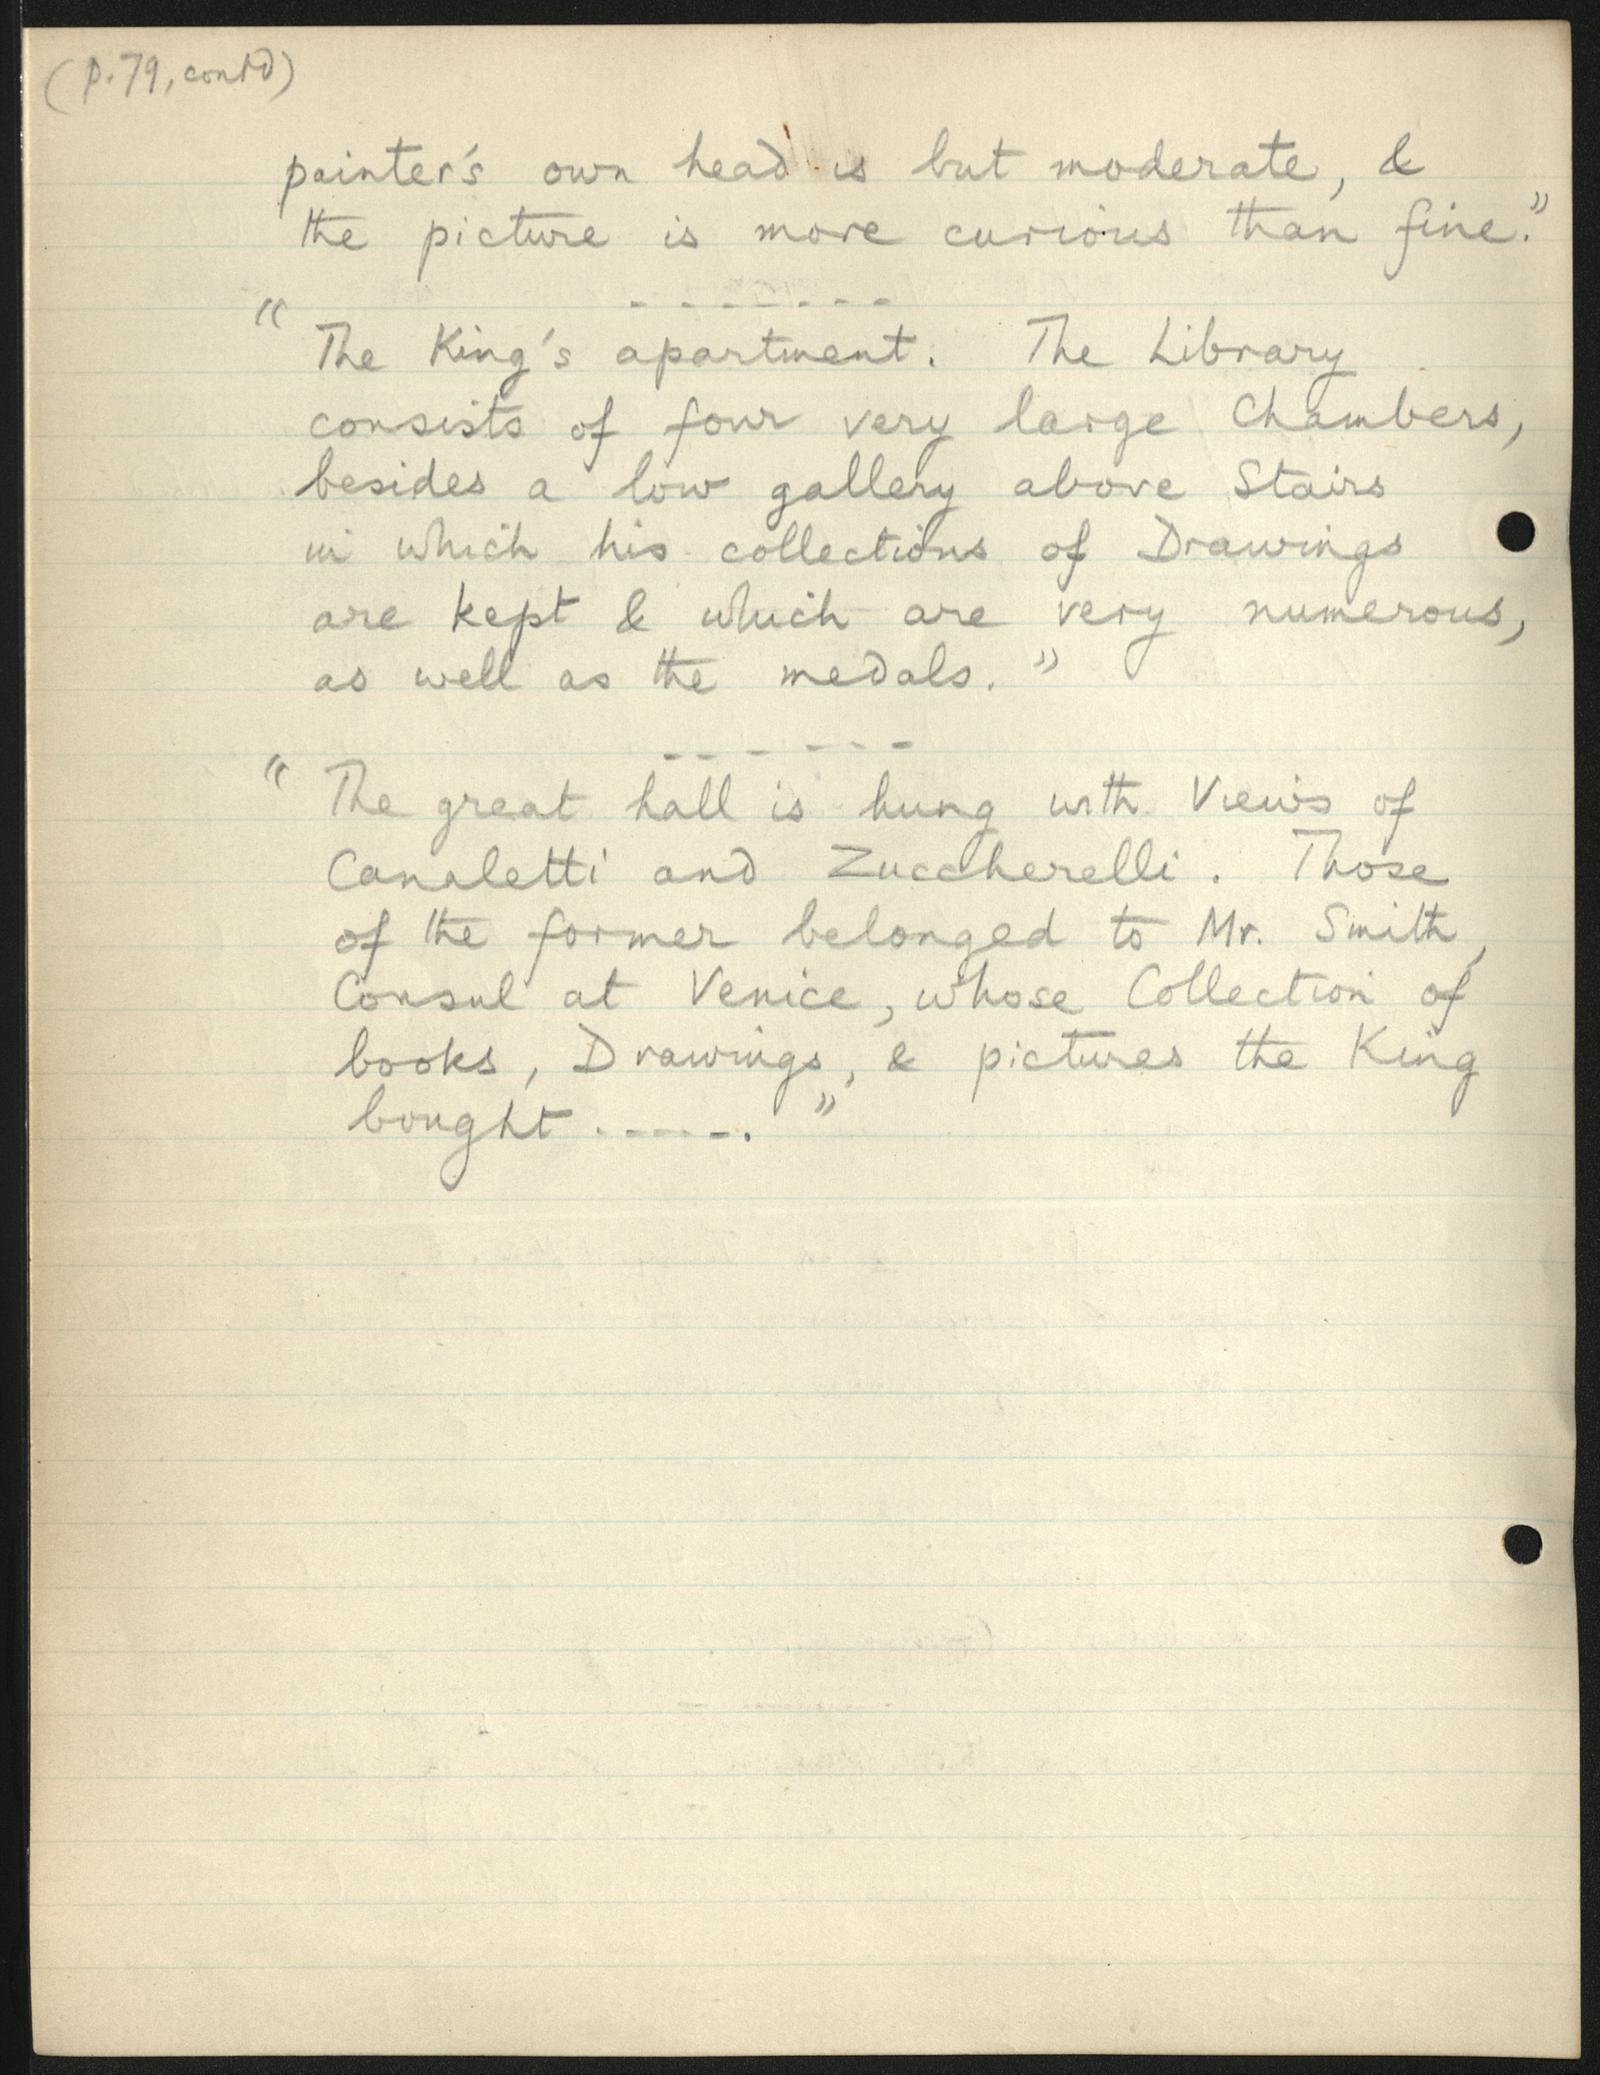 (p.79, contd)
painter's own head is but moderate, &
the picture is more curious than fine."
- - - - - - -
" The King's apartment. The Library
consists of four very large Chambers,
besides a low gallery above Stairs
in which his collections of Drawings
are kept & which are very numerous,
as well as the medals. "
- - - - - -
" The great hall is hung with Views of
Canaletti and Zuccherelli. Those
of the former belonged to Mr. Smith,
Consul at Venice, whose Collection of
books, Drawings, & pictures the King
bought - - - - - . "